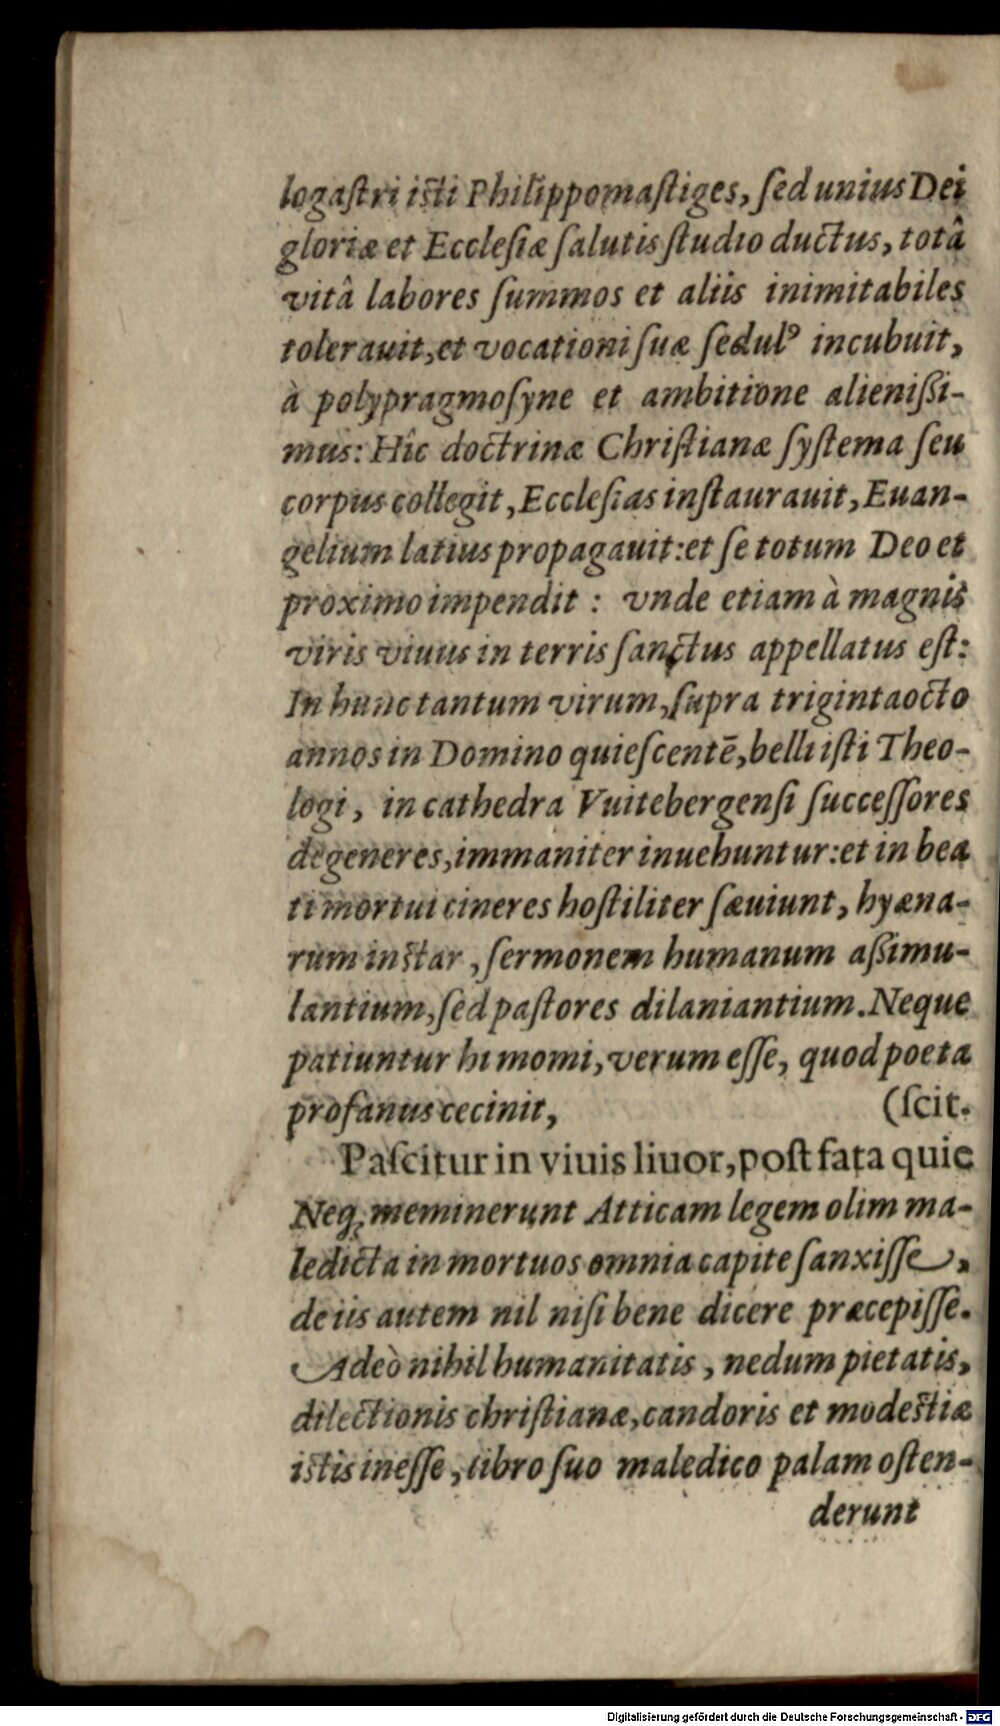 logaſtri iſti Philippomaſtiges, ſed unius Dei
gloriæ et Eccleſiæ ſalutis ſtudio ductus, totâ
vitâ labores ſummos et aliis inimitabiles
tolerauit, et vocationi ſuæ ſedulꝰ incubuit,
à polypragmoſyne et ambitione alienißi-
mus: Hîc doctrinæ Chriſtianæ ſyſtema ſeu
corpus collegit, Eccleſias inſtaurauit, Euan-
gelium latius propagauit: et ſe totum Deo et
proximo impendit : vnde etiam à magnis
viris viuus in terris ſanctus appellatus eſt:
In hunc tantum virum, ſupra triginta octo
annos in Domino quieſcentē, belli iſti Theo-
logi, in cathedra Vuitebergenſi ſucceſſores
degeneres, immaniter inuehuntur: et in bea
ti mortui cineres hoſtiliter ſæuiunt, hyæna-
rum inſtar, ſermonem humanum aßimu-
lantium, ſed paſtores dilaniantium. Neque
patiuntur hi momi, verum eſſe, quod poeta
profanus cecinit, (ſcit.
Paſcitur in viuis liuor, poſt fata quie
Neq; meminerunt Atticam legem olim ma-
ledicta in mortuos omnia capite ſanxiſſe,
de iis autem nil niſi bene dicere præcepiſſe.
Adeò nihil humanitatis, nedum pietatis,
dilectionis chriſtianæ, candoris et modeſtiæ
iſtis ineſſe, libro ſuo maledico palam oſten-
derunt
Digitalisierung gefördert durch die Deutsche Forschungsgemeinschaft - DFG